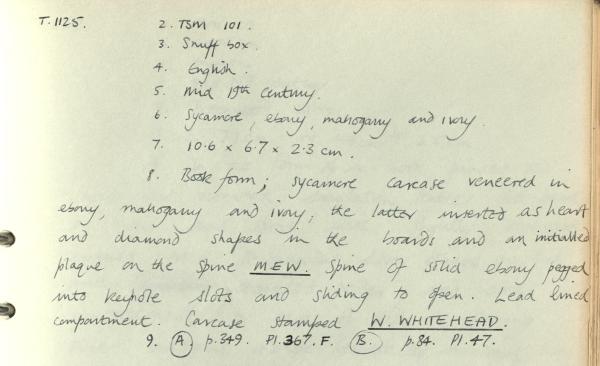 T.1125. 2. TSM 101.
3. Snuff box.
4. English.
5. Mid 19th Century.
6. Sycamore, ebony, mahogany and ivory.
7. 10.6 x 6.7 x 2.3 cm.
8. Book form; sycamore carcase veneered in
ebony, mahogany and ivory; the latter inserted as heart
and diamond shapes in the boards and an initialled
plaque on the spine M.E.W. Spine of solid ebony pegged
into keyhole slots and sliding to open. Lead lined
compartment. Carcase stamped W. WHITEHEAD.
9. A p.349. Pl.367.F. B. p.84. Pl.47.